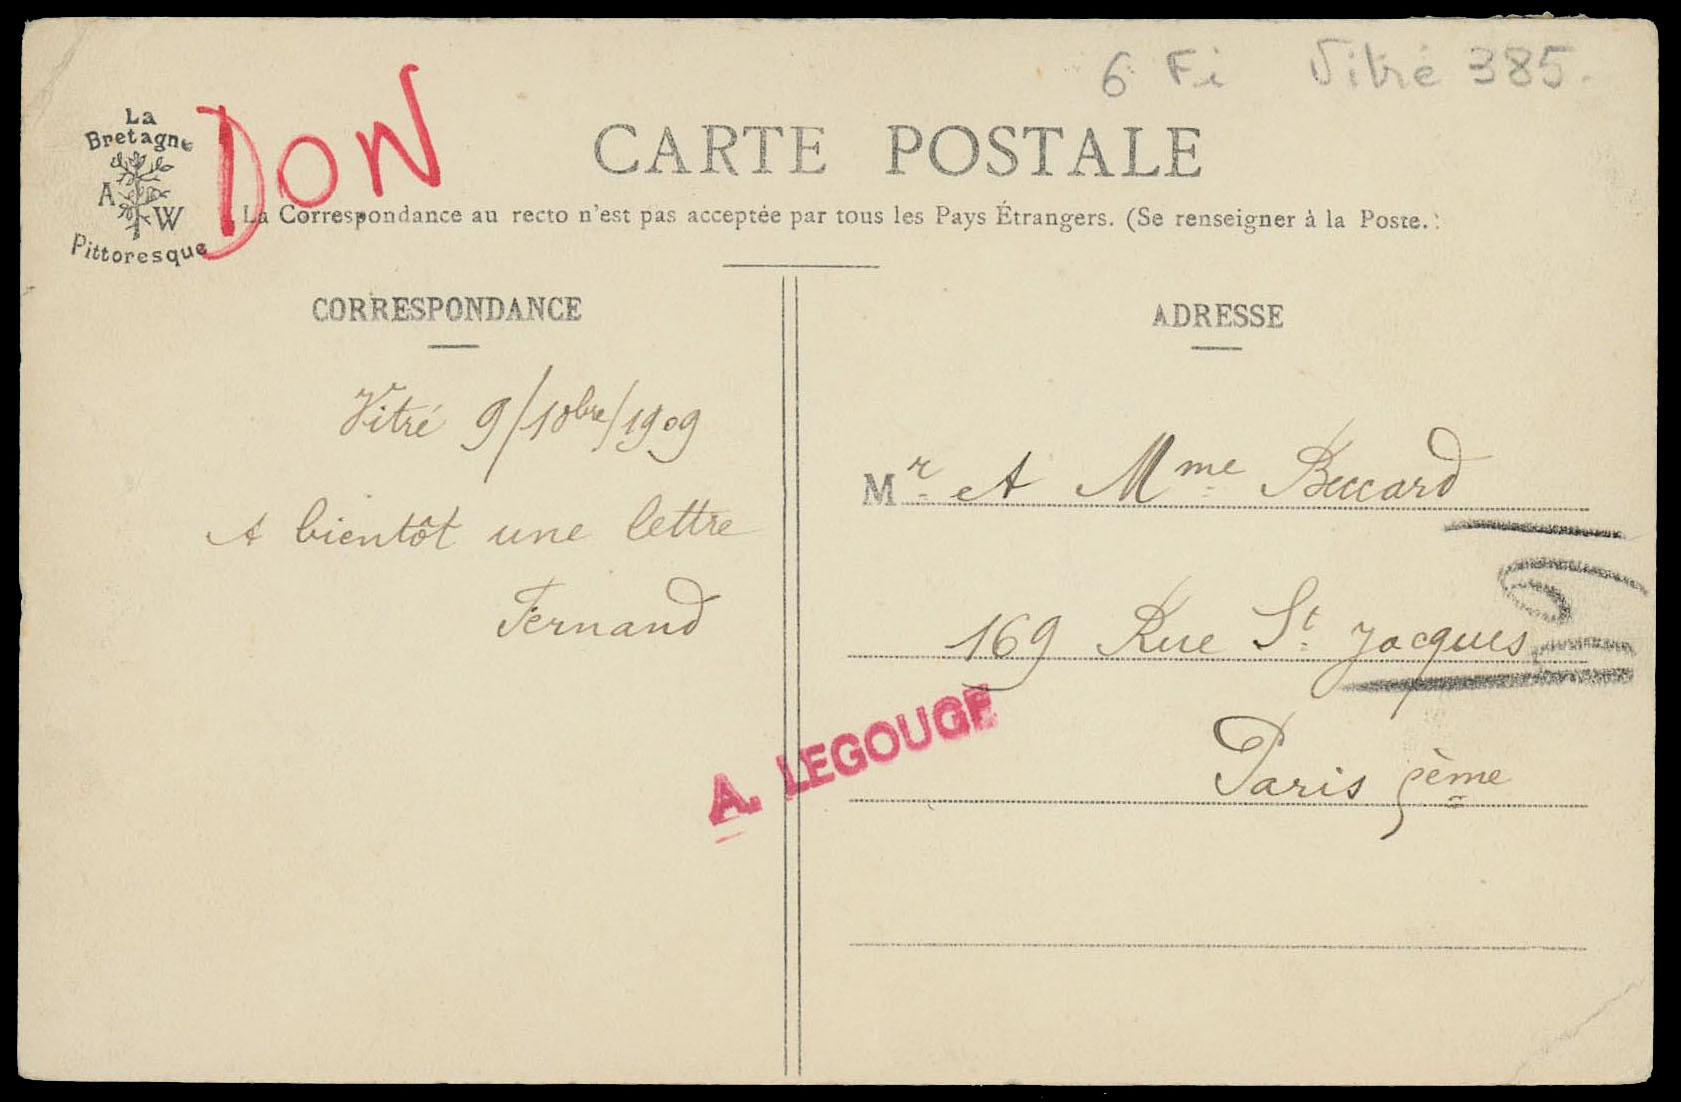 6 Fi Vitré 385.
La
Bretagne
A W
Pittoresque
DON
CARTE POSTALE
La Correspondance au recto n'est pas acceptée par tous les Pays Étrangers. (Se renseigner à la Poste.)
CORRESPONDANCE
Vitré 9/10bre/1909
A bientôt une lettre
Fernand
A. LEGOUGE
ADRESSE
Mr et Mme Beccard
169 Rue St Jacques
Paris 5ème